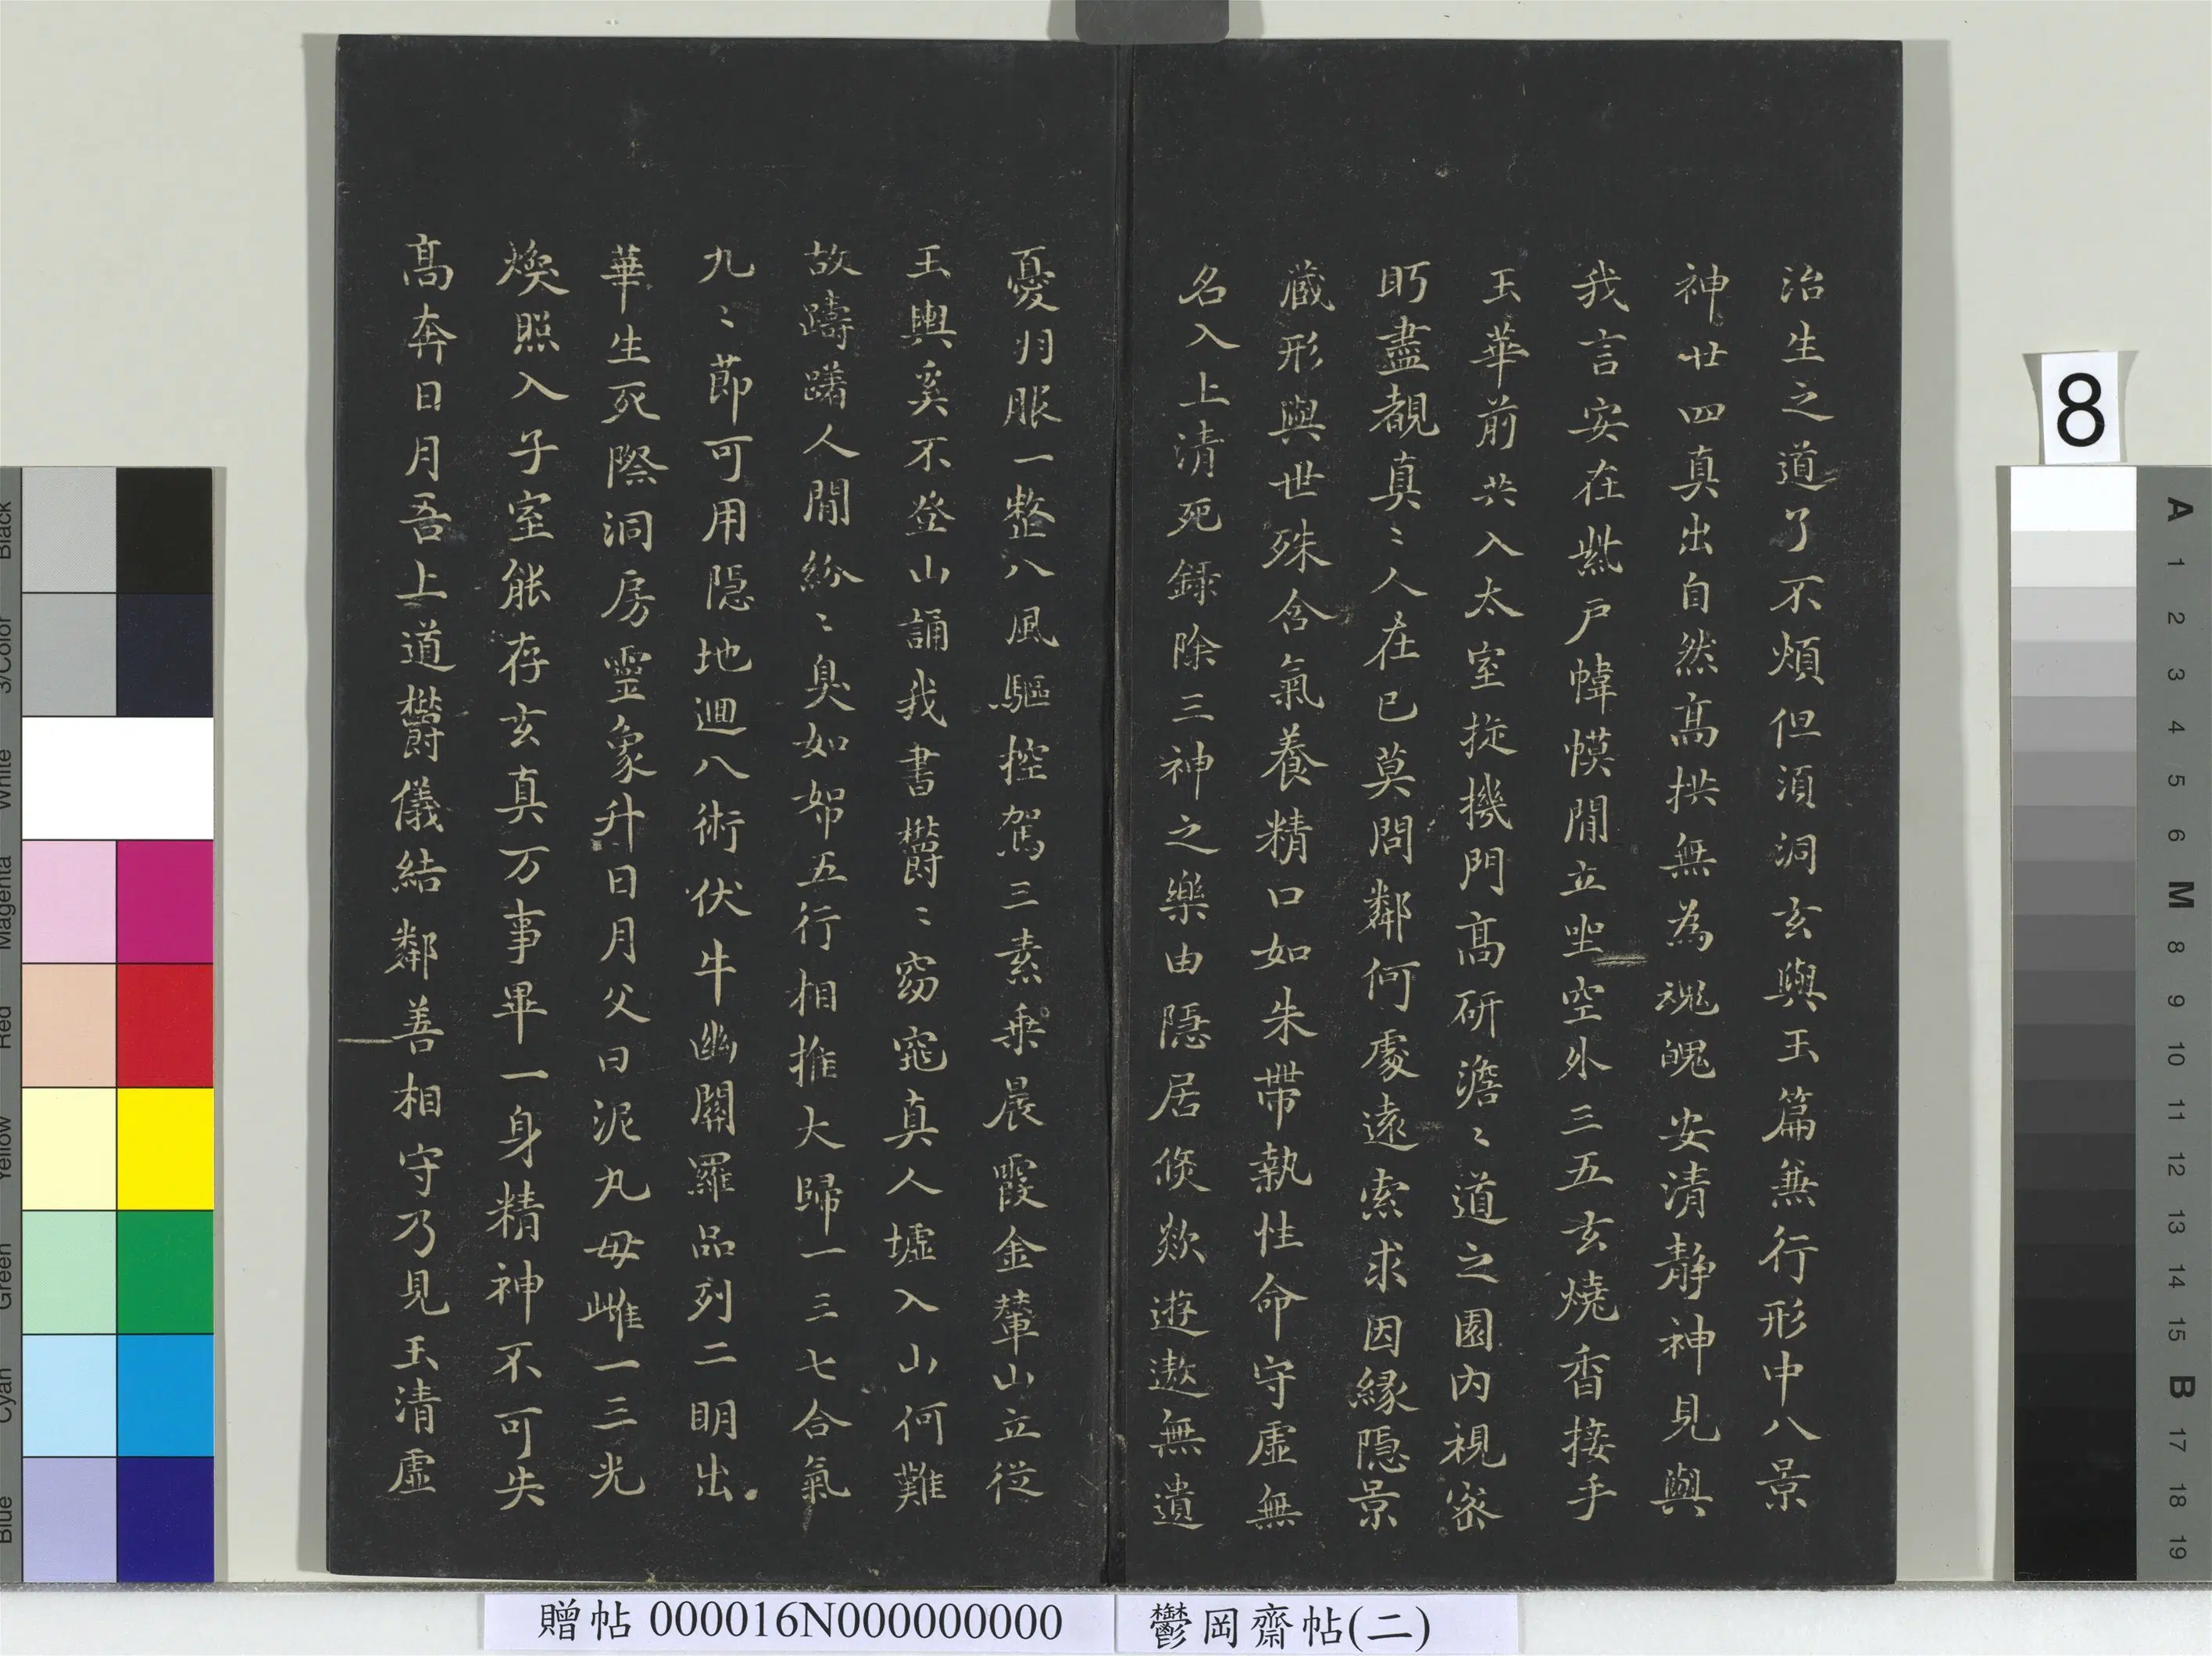 治生之道了不煩但湏洞玄與玉篇兼行形中八景
神廿四真出自然高拱無為魂魄安清静神見與
我言安在紫戶幃幙閒立坐空外三五玄燒香接手
玉華前共入太室琁機門高研澹〻道之園内視密
眄盡覩真〻人在己莫問鄰何處遠索求因緣隱景
藏形與世殊含氣養精口如朱帶執性命守虛無
名入上清死錄除三神之樂由隱居倐欻遊遨無遺
憂羽服一整八風驅控駕三素乗晨霞金輦山立從
玉輿奚不登山誦我書鬱〻窈窕真人墟入山何難
故躊躇人閒紛〻臭如帤五行相推大歸一三七合氣
九〻節可用隱地迴八術伏牛幽闕羅品列二明出
華生死際洞房靈象升日月父曰泥丸母雌一三光
煥照入子室能存玄真万事畢一身精神不可失
高奔日月吾上道鬱儀結鄰善相守乃見玉清虛
8
贈帖 000016N000000000
鬱岡齋帖(二)
Black
3/Color
White
Magenta
Red
Yellow
Green
Cyan
Blue
A
1
2
3
4
5
6
M
8
9
10
11
12
13
14
15
B
17
18
19